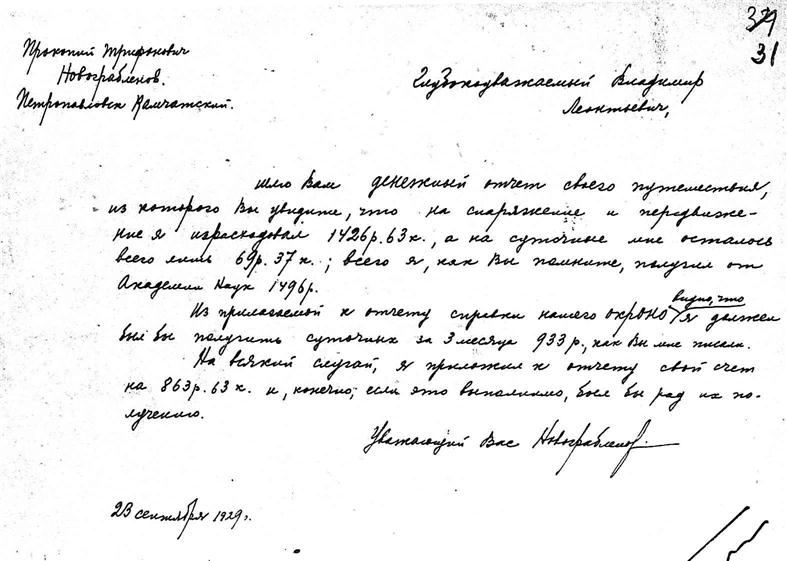 39
31
Прокопий Трифонович
Новограбленов.
Петропавловск Камчатский.
Глубокоуважаемый Владимир
Леонтьевич,
шлю Вам денежный отчет своего путешествия,
из которого Вы увидите, что на снаряжение и передвиже-
ние я израсходовал 1426р. 63к., а на суточные мне осталось
всего лишь 69р. 37к.; всего я, как Вы помните, получил от
Академии Наук 1496р.
Из прилагаемой к отчету справки нашего ОКРОНО видно, что я должен
был бы получить суточных за 3 месяца 933р, как Вы мне писали.
На всякий случай, я приложил к отчету свой счет
на 863р. 63к. и, конечно, если это выполнимо, был бы рад их по-
лучению.
Уважающий Вас Новограбленов.
23 сентября 1929г.